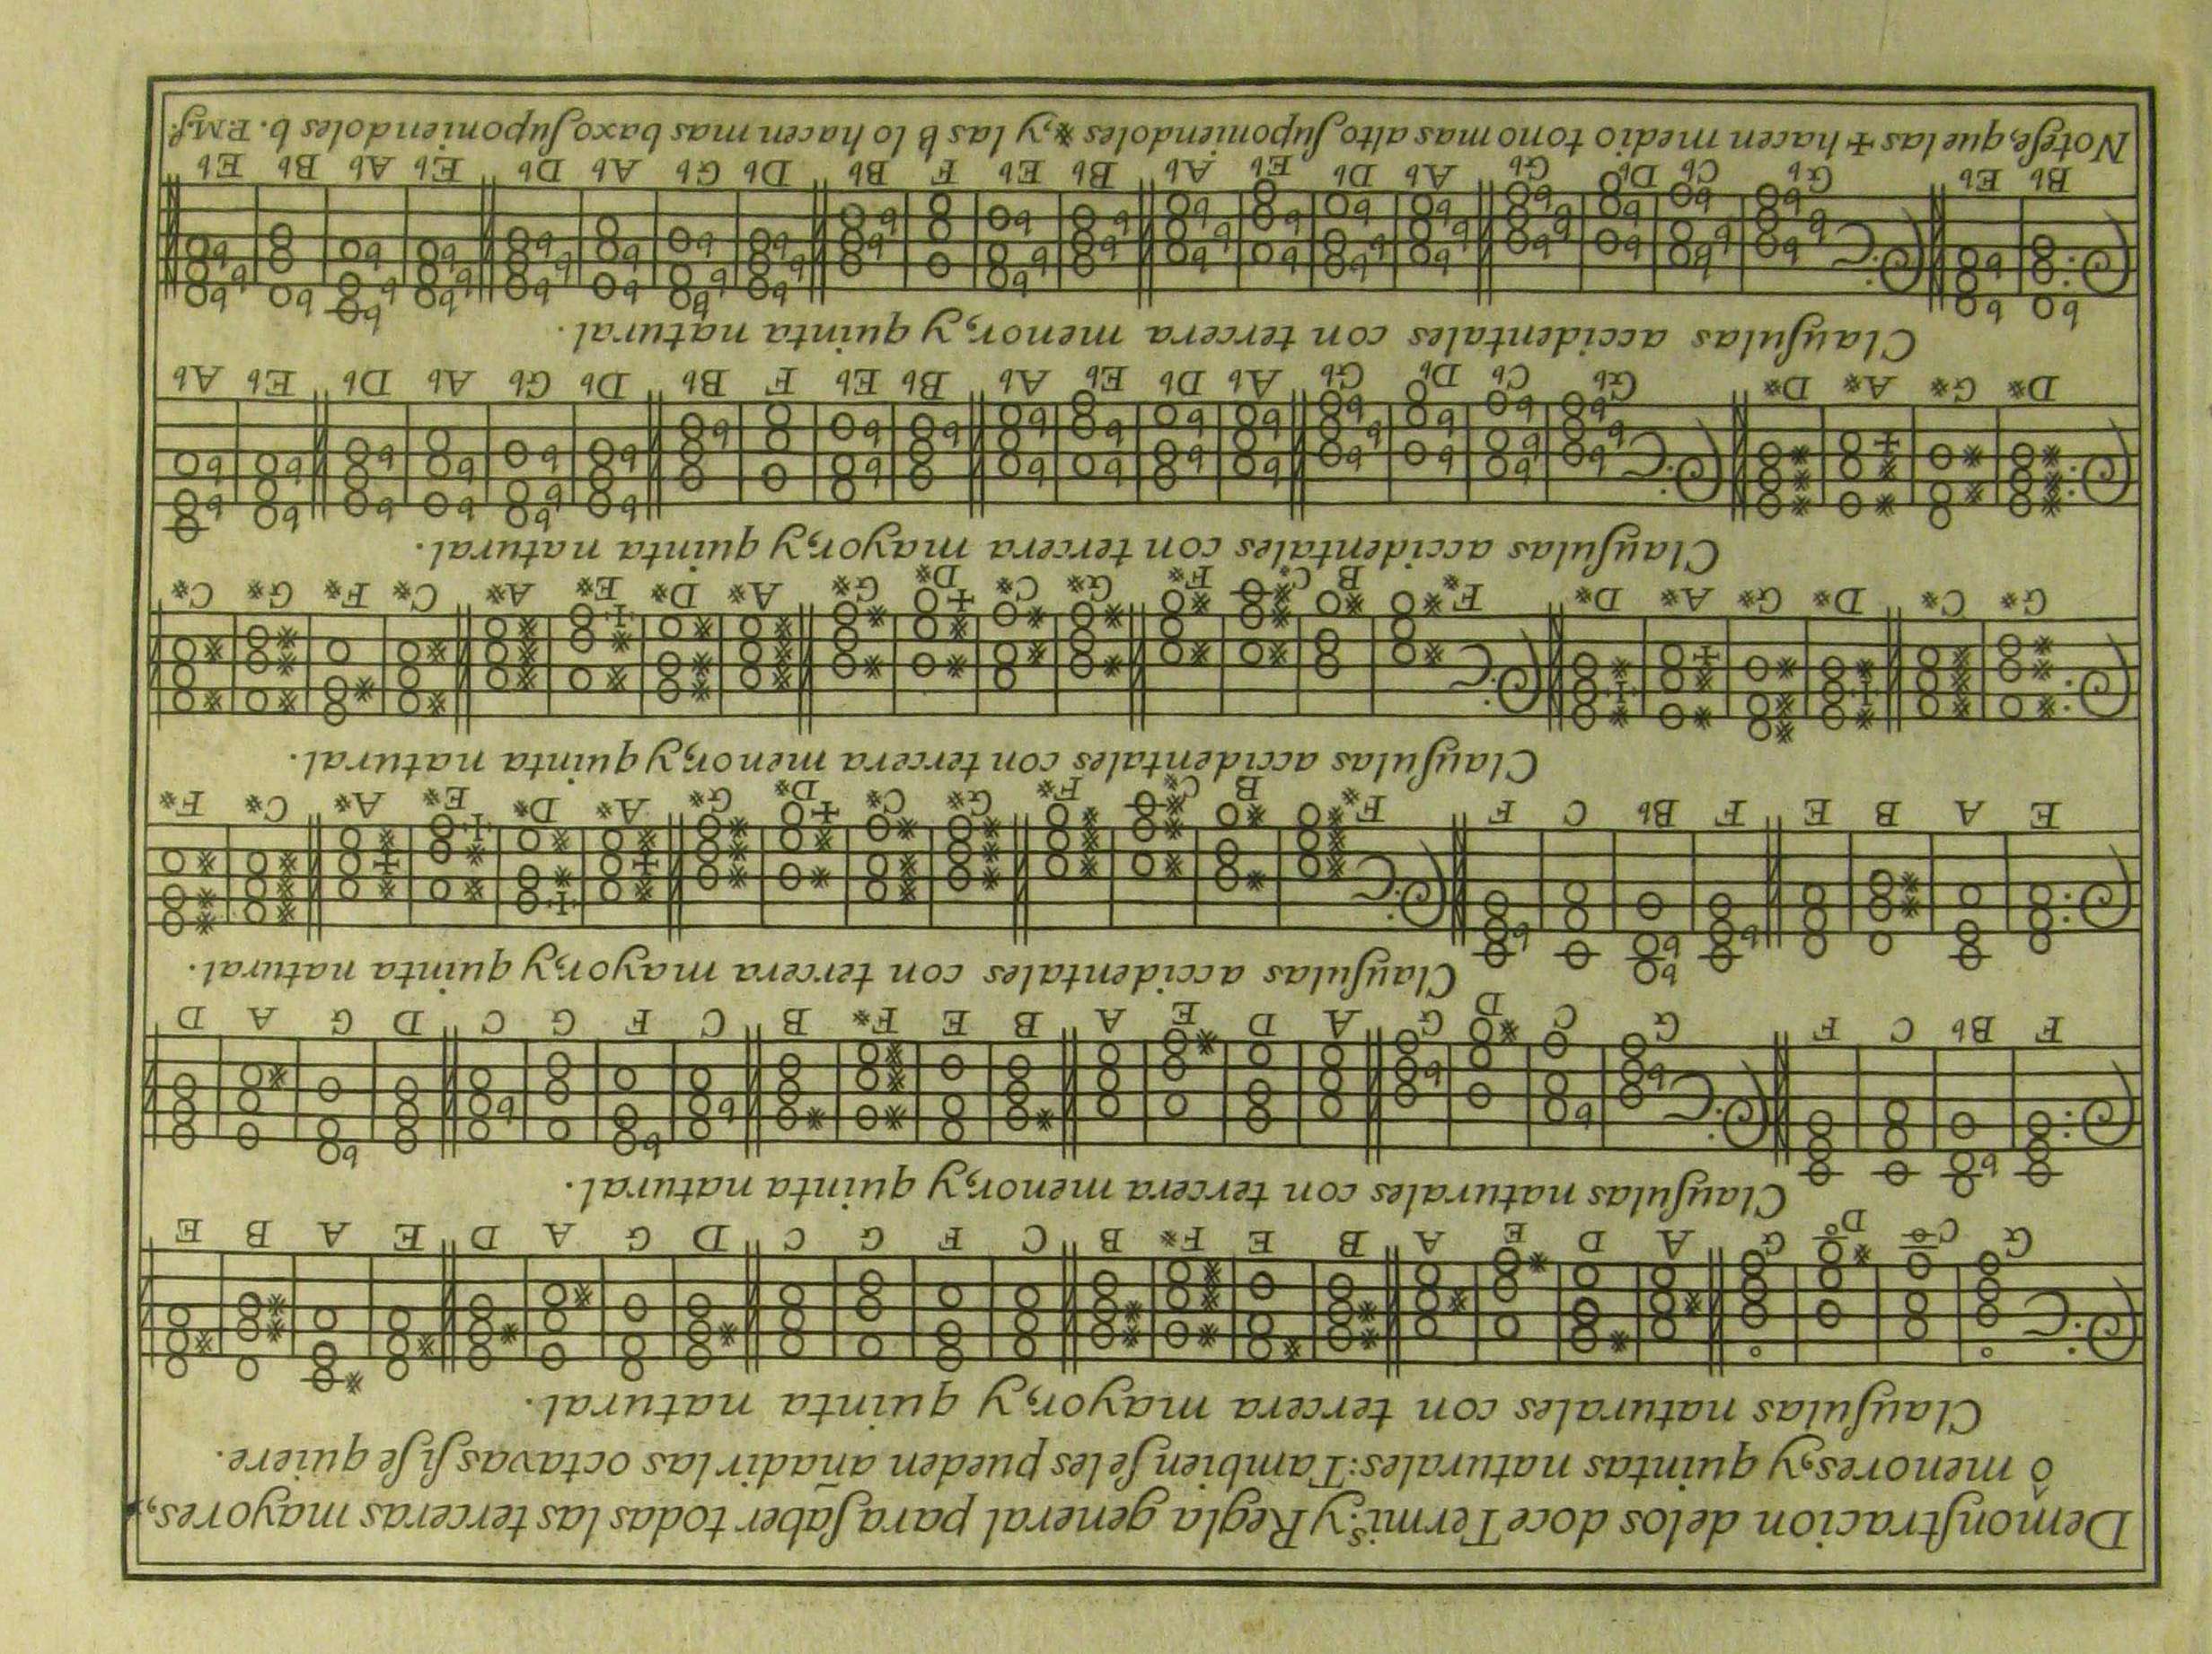 Demonſtracion delos doce Termiˢ: y Regla general para ſaber todas las terceras mayores,
ò menores, y quintas naturales: Tambien ſe les pueden añadir las octavas ſi ſe quiere.
Clauſulas naturales con tercera mayor, y quinta natural.
G C D G A D E A B E F* B C F G C D G A D E A B E
Clauſulas naturales con tercera menor, y quinta natural.
F B♭ C F G C D G A D E A B E F* B C F G C D G A D
Clauſulas accidentales con tercera mayor, y quinta natural.
E A B E F B♭ C F F* B C* F* G* C* D* G* A* D* E* A* C* F*
Clauſulas accidentales con tercera menor, y quinta natural.
G* C* D* G* A* D* F* B C* F* G* C* D* G* A* D* E* A* C* F* G* C*
Clauſulas accidentales con tercera mayor, y quinta natural.
D* G* A* D* G♭ C♭ D♭ G♭ A♭ D♭ E♭ A♭ B♭ E♭ F B♭ D♭ G♭ A♭ D♭ E♭ A♭
Clauſulas accidentales con tercera menor, y quinta natural.
B♭ E♭ G♭ C♭ D♭ G♭ A♭ D♭ E♭ A♭ B♭ E♭ F B♭ D♭ G♭ A♭ D♭ E♭ A♭ B♭ E♭
Noteſe, que las + hacen medio tono mas alto ſuponiendoles *, y las b lo hacen mas baxo ſuponiendoles b.